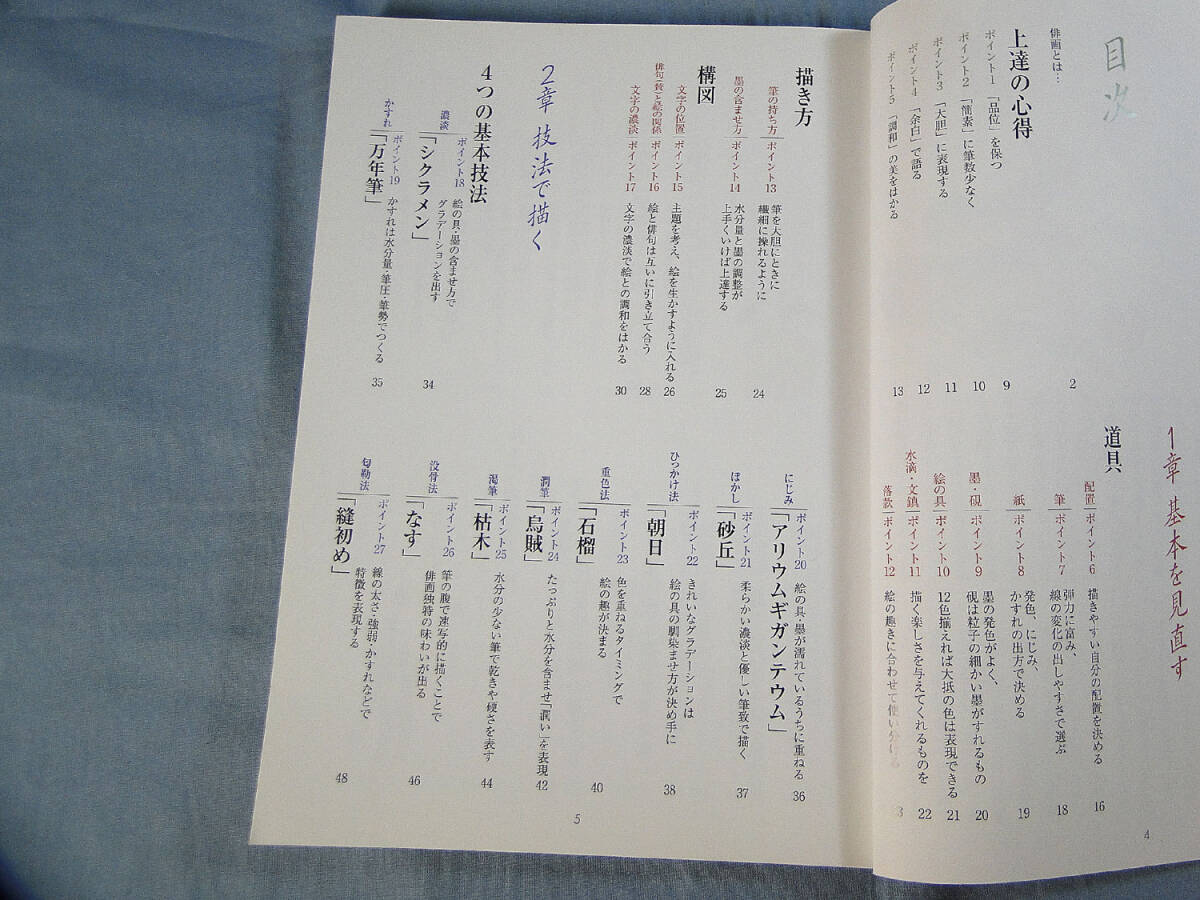 目次
俳画とは… 2
上達の心得 9
ポイント1 「品位」を保つ
ポイント2 「簡素」に筆数少なく 10
ポイント3 「大胆」に表現する 11
ポイント4 「余白」で語る 12
ポイント5 「調和」の美をはかる 13
1章 基本を見直す
道具
配置 ポイント6 描きやすい自分の配置を決める 16
筆 ポイント7 弾力に富み、
線の変化の出しやすさで選ぶ 18
紙 ポイント8 発色、にじみ、
かすれの出方で決める 19
墨・硯 ポイント9 墨の発色がよく、
硯は粒子の細かい墨がすれるもの 20
絵の具 ポイント10 12色揃えれば大抵の色は表現できる 21
水滴・文鎮 ポイント11 描く楽しさを与えてくれるものを 22
落款 ポイント12 絵の趣きに合わせて使い分ける 3
4
描き方
筆の持ち方 ポイント13 筆を大胆にときに
繊細に操れるように 24
墨の含ませ方 ポイント14 水分量と墨の調整が
上手くいけば上達する 25
構図
文字の位置 ポイント15 主題を考え、絵を生かすように入れる 26
俳句(賛)と絵の関係 ポイント16 絵と俳句は互いに引き立て合う 28
文字の濃淡 ポイント17 文字の濃淡で絵との調和をはかる 30
2章 技法で描く
4つの基本技法
濃淡 ポイント18 絵の具・墨の含ませ方で
「シクラメン」 グラデーションを出す 34
かすれ ポイント19 かすれは水分量・筆圧・筆勢でつくる
「万年筆」 35
にじみ ポイント20 絵の具・墨が濡れているうちに重ねる
「アリウムギガンテウム」 36
ぼかし ポイント21 柔らかい濃淡と優しい筆致で描く
「砂丘」 37
ひっかけ法 ポイント22 きれいなグラデーションは
「朝日」 絵の具の馴染ませ方が決め手に 38
重色法 ポイント23 色を重ねるタイミングで
「石榴」 絵の趣が決まる 40
潤筆 ポイント24 たっぷりと水分を含ませ「潤い」を表現
「烏賊」 42
渇筆 ポイント25 水分の少ない筆で乾きや硬さを表す
「枯木」 44
没骨法 ポイント26 筆の腹で速写的に描くことで
「なす」 俳画独特の味わいが出る 46
勾勒法 ポイント27 線の太さ・強弱・かすれなどで
「縫初め」 特徴を表現する 48
5